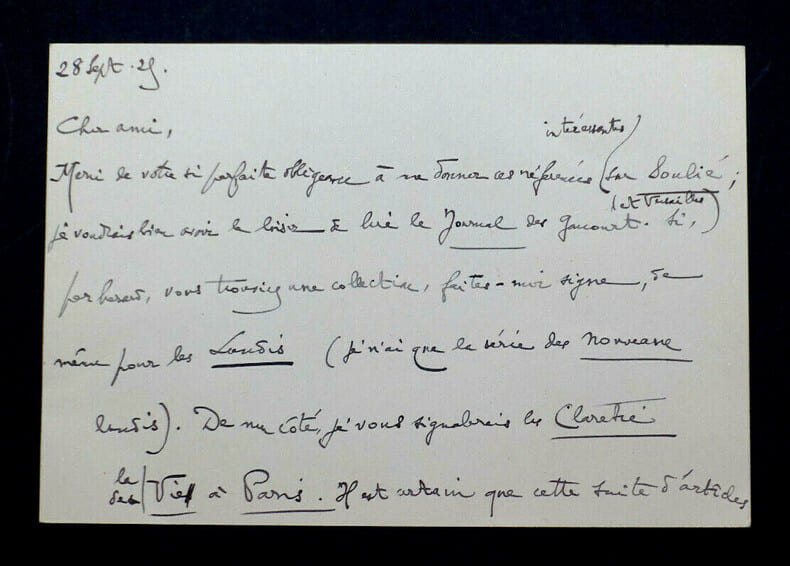 28 Sept. 25.
Cher ami,
intéressantes
Merci de votre si parfaite obligeance à me donner ces références sur Soulié ;
(et Versailles)
je voudrais bien avoir le loisir de lire le Journal des Goncourt. Si,
par hasard, vous trouviez une collection, faites-moi signe, de
même pour les Lundis (je n'ai que la série des nouveaux
lundis). De mon côté, je vous signalerais les Claretie
la Vie à Paris. Il est certain que cette suite d'articles